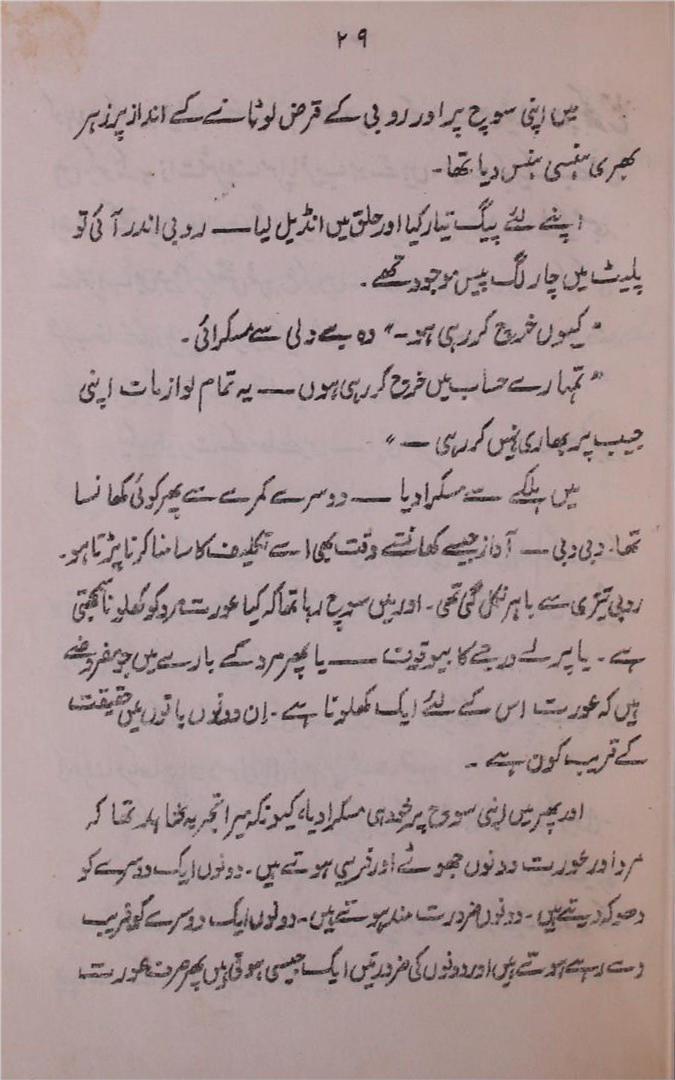 ۲۹
میں اپنی سوچ پر اور روبی کے قرض لوٹانے کے انداز پر زہر
بھری ہنسی ہنس دیا تھا۔
اپنے لئے پیگ تیار کیا اور حلق میں انڈیل لیا — روبی اندر آئی تو
پلیٹ میں چار لگ پیس موجود تھے۔
"کیوں خرچ کر رہی ہو۔" وہ بے دلی سے مسکرائی۔
"تمہارے حساب میں خرچ کر رہی ہوں — یہ تمام لوازمات اپنی
جیب پر بھاری نہیں کر رہی —"
میں ہلکے سے مسکرا دیا — دوسرے کمرے سے پھر کوئی کھانسا
تھا۔ دبی دبی — آواز جیسے کھانستے وقت بھی اسے تکلیف کا سامنا کرنا پڑتا ہو۔
روبی تیزی سے باہر نکل گئی تھی۔ اور میں سوچ رہا تھا کہ کیا عورت مرد کو کھلونا سمجھتی
ہے۔ یا پرلے درجے کا بیوقوف — یا پھر مرد کے بارے میں جو مفروضے
ہیں کہ عورت اس کے لئے ایک کھلونا ہے۔ ان دونوں باتوں میں حقیقت
کے قریب کون ہے۔
اور پھر میں اپنی سوچ پر خود ہی مسکرا دیا، کیونکہ میرا تجربہ تھا کہ
مرد اور عورت دونوں جھوٹے اور فریبی ہوتے ہیں۔ دونوں ایک دوسرے کو
دھوکہ دیتے ہیں۔ دونوں ضرورت مند ہوتے ہیں۔ دونوں ایک دوسرے کو فریب
دے رہے ہوتے ہیں اور دونوں کی ضرورتیں ایک جیسی ہوتی ہیں پھر صرف عورت